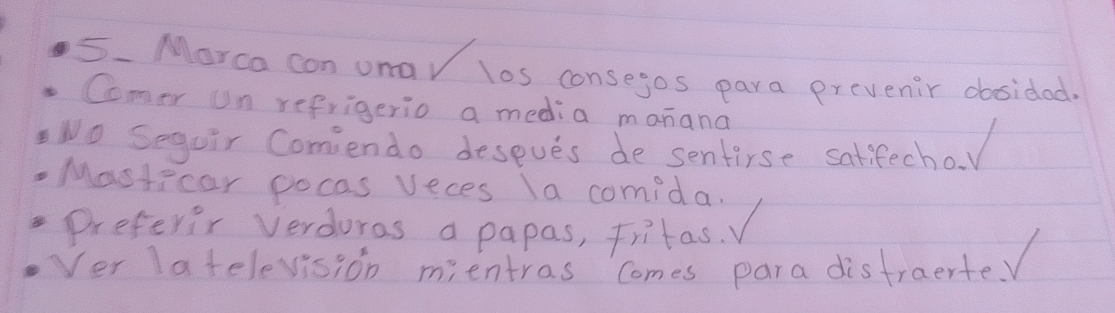 • 5_ Marca con una ✓ los consegos para prevenir obsidad.
• Comer un refrigerio a media mañana
• No Seguir Comiendo desqués de sentirse satifecho. ✓
• Masticar pocas veces la comida.
• Preferir verduras a papas, fritas. ✓
• Ver la televisión mientras Comes para distraerte. ✓